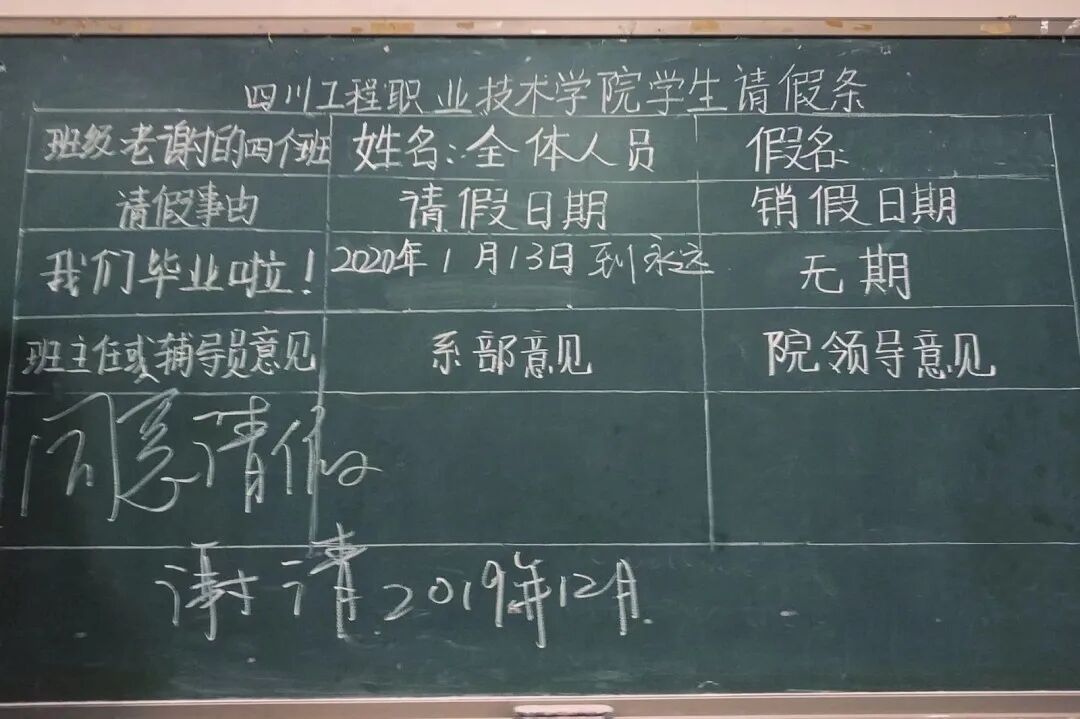 四川工程职业技术学院学生请假条
班级 老谢的四个班 姓名:全体人员 假名:
请假事由 请假日期 销假日期
我们毕业啦! 2020年1月13日到永远 无期
班主任或辅导员意见 系部意见 院领导意见
同意请假
谢请 2019年12月